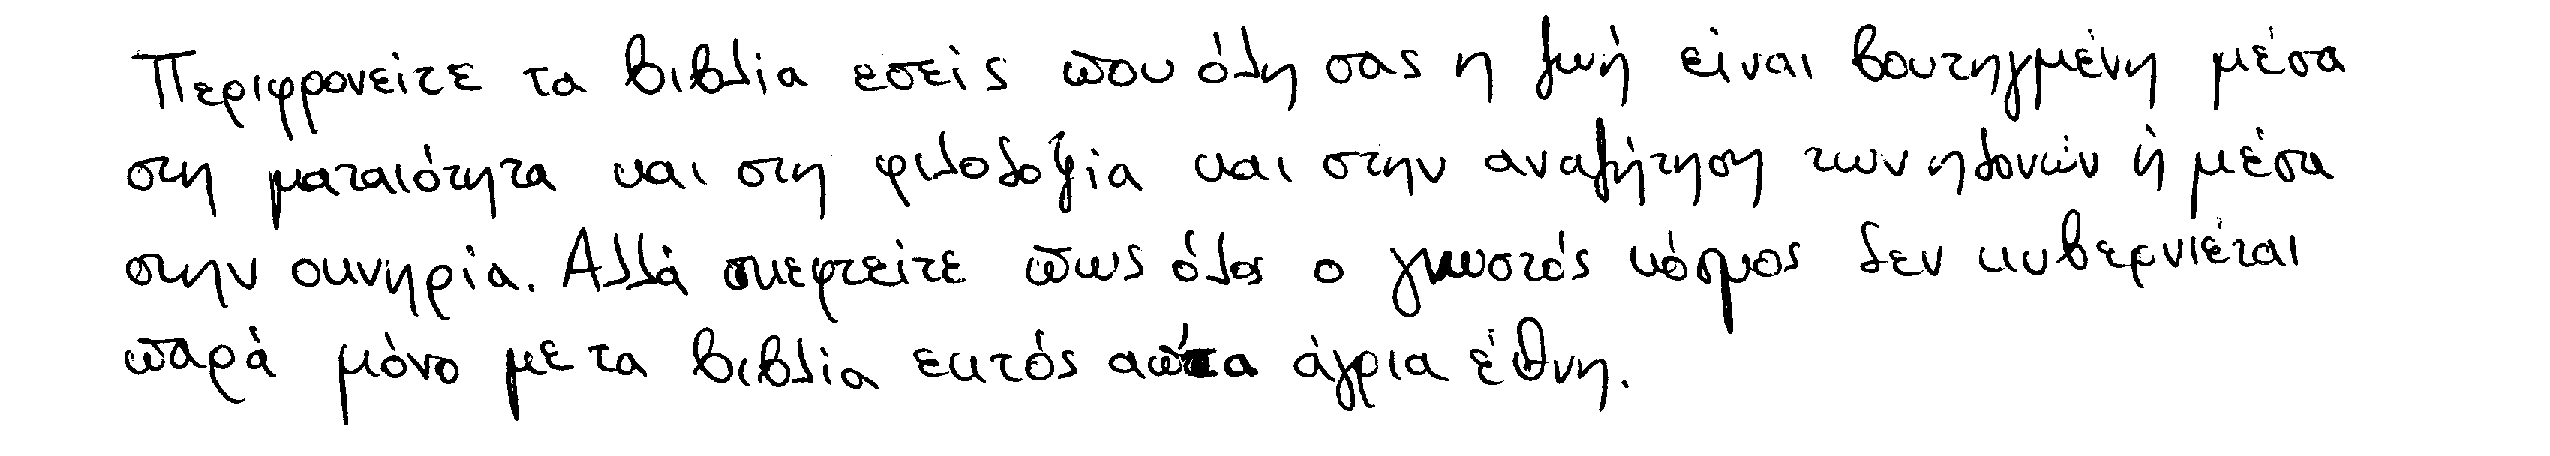 Περιφρονείτε τα βιβλία εσείς που όλη σας η ζωή είναι βουτηγμένη μέσα
στη ματαιότητα και στη φιλοδοξία και στην αναζήτηση των ηδονών ή μέσα
στην οκνηρία. Αλλά σκεφτείτε πως όλος ο γνωστός κόσμος δεν κυβερνιέται
παρά μόνο με τα βιβλία εκτός απ'τα άγρια έθνη.